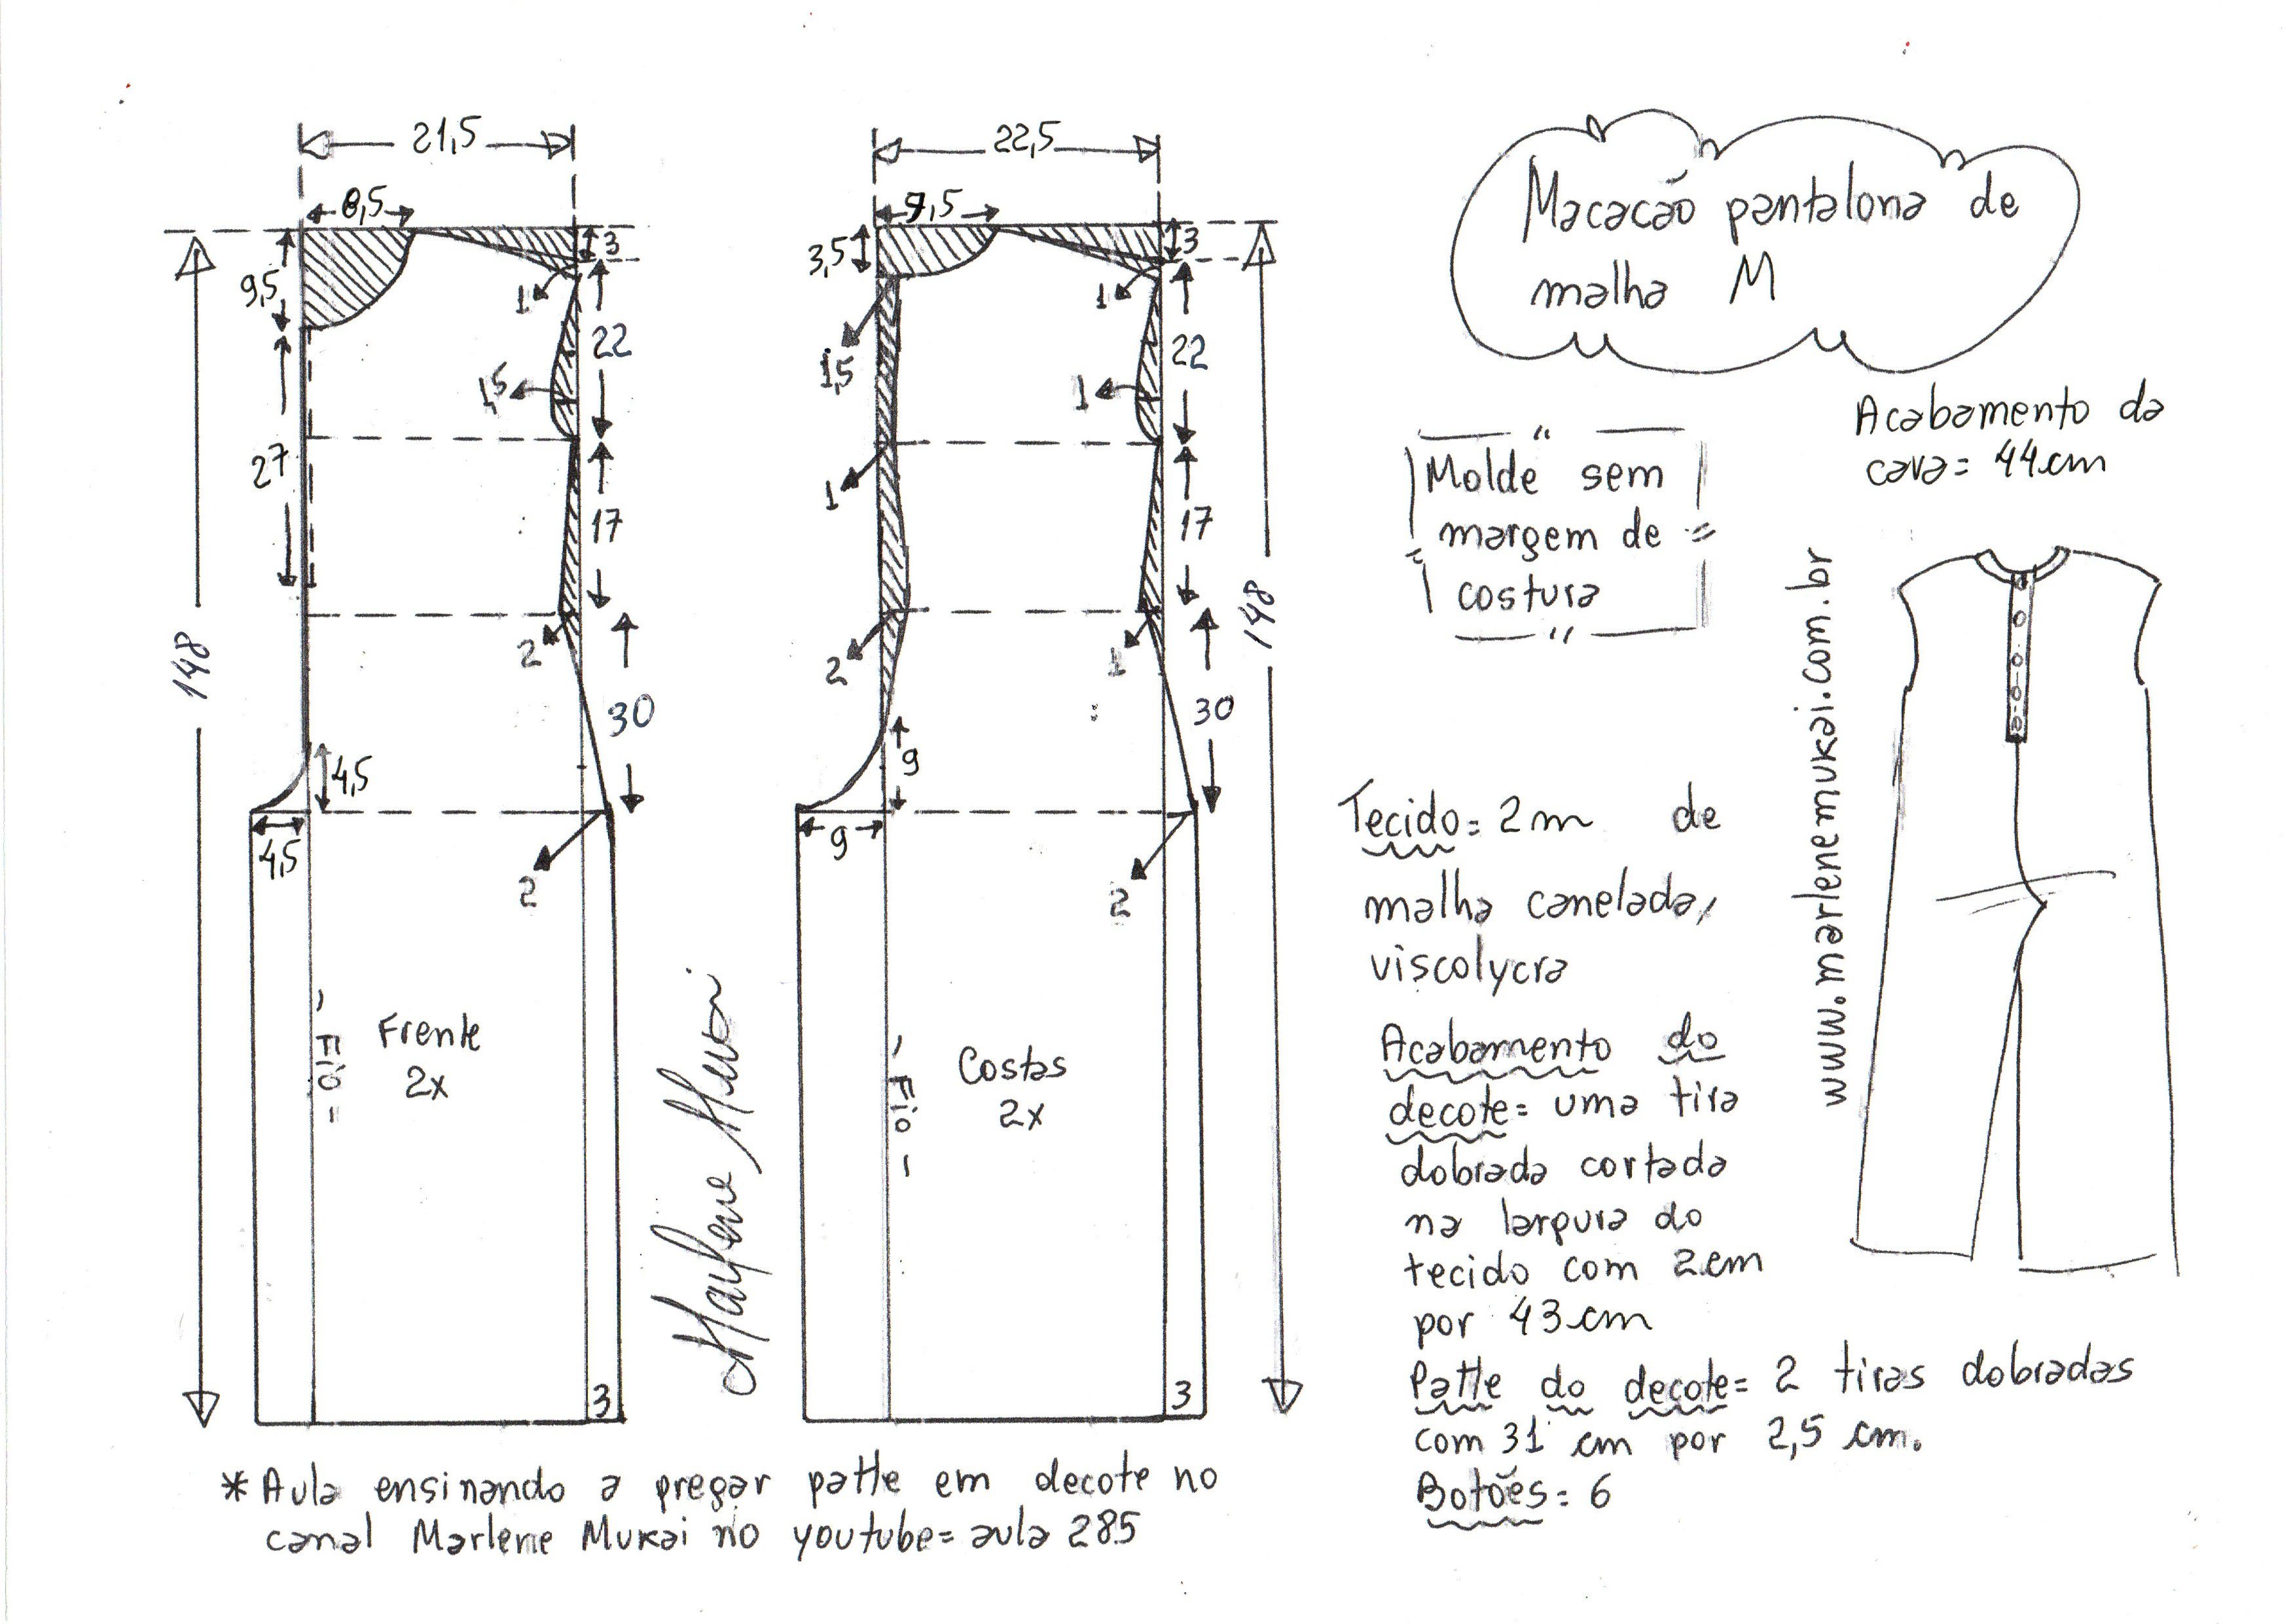 21,5
8,5
9,5
3
1
22
1,5
27
17
2
148
30
4,5
4,5
2
Frente
2x
Fio
3
22,5
9,5
3,5
3
1
22
1,5
1
1
17
2
1
148
30
9
9
2
Costas
2x
Fio
3
Macacão pantalona de
malha M
Molde sem
margem de
costura
Acabamento da
cava= 44cm
www.marlenemukai.com.br
Tecido= 2m de
malha canelada,
viscolycra
Acabamento do
decote= uma tira
dobrada cortada
na largura do
tecido com 2cm
por 43cm
Patte do decote= 2 tiras dobradas
com 31 cm por 2,5 cm.
Botões= 6
Marlene Mukai
* Aula ensinando a pregar patte em decote no
canal Marlene Mukai no youtube= aula 285